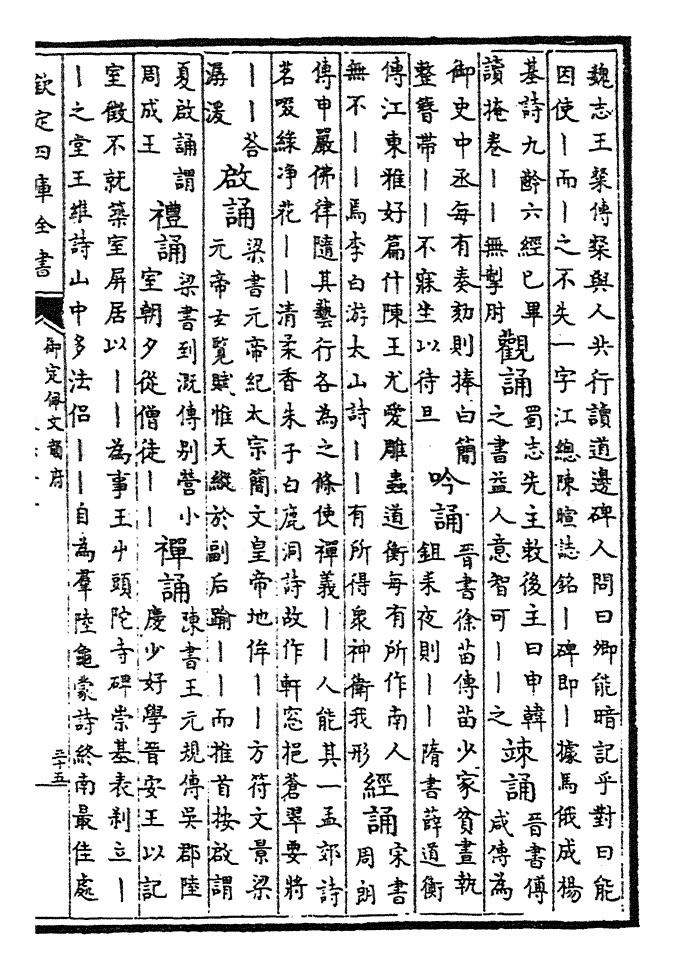 魏志王粲傳粲與人共行讀道邊碑人問曰卿能暗記乎對曰能
因使｜而｜之不失一字江總陳暄誌銘｜碑即｜據馬俄成楊
基詩九齡六經已畢
讀掩卷｜｜無掣肘
觀誦
蜀志先主敕後主曰申韓
之書益人意智可｜｜之
竦誦
晉書傅
咸傳為
御史中丞每有奏劾則捧白簡
整簪帶｜｜不寐坐以待旦
吟誦
晉書徐苗傳苗少家貧晝執
鉏耒夜則｜｜隋書薛道衡
傳江東雅好篇什陳王尤愛雕蟲道衡每有所作南人
無不｜｜焉李白游太山詩｜｜有所得衆神衛我形
經誦
宋書
周朗
傳申嚴佛律隨其藝行各為之條使禪義｜｜人能其一孟郊詩
茗啜綠净花｜｜清柔香朱子白鹿洞詩故作軒窓挹蒼翠要將
｜｜荅
潺湲
啟誦
梁書元帝紀太宗簡文皇帝地侔｜｜方符文景梁
元帝玄覽賦惟天縱於副后踰｜｜而推首按啟謂
夏啟誦謂
周成王
禮誦
梁書到溉傳别營小
室朝夕從僧徒｜｜
禪誦
陳書王元規傳吳郡陸
慶少好學晉安王以記
室徵不就築室屏居以｜｜為事王屮頭陀寺碑崇基表刹立｜
｜之堂王維詩山中多法侶｜｜自為羣陸龜蒙詩終南最佳處
欽定四庫全書
御定佩文韻府
三十五